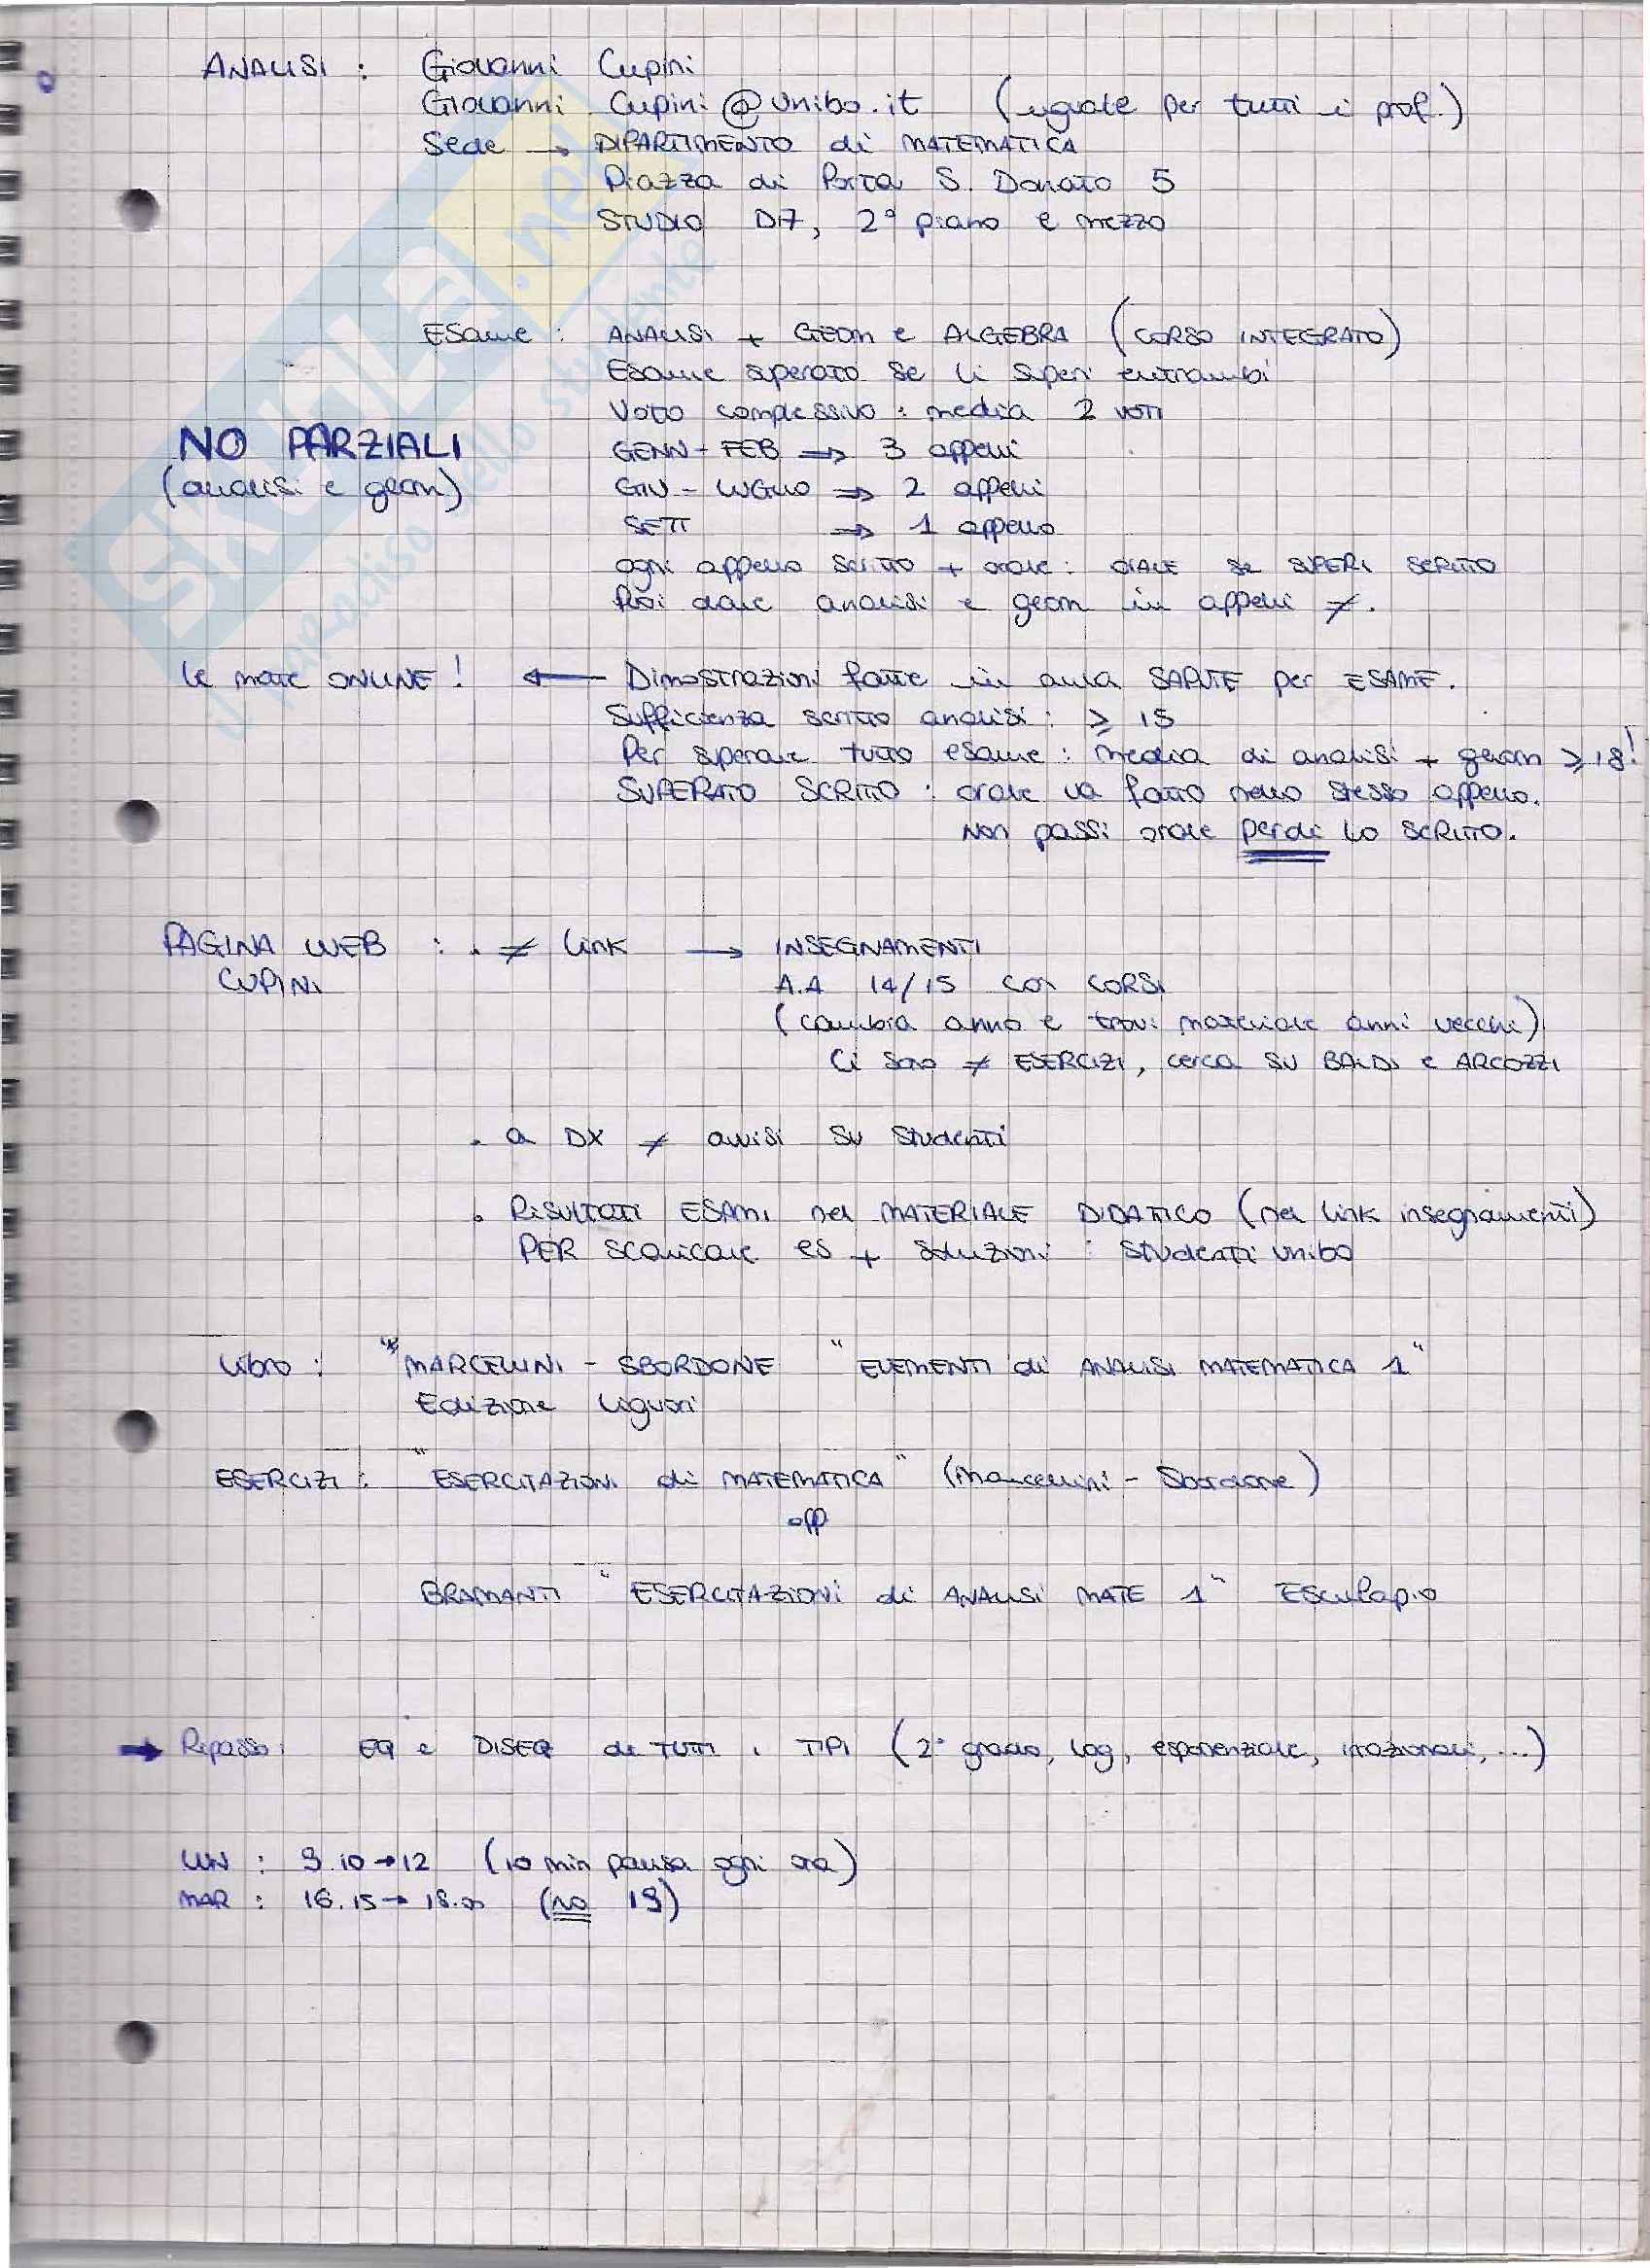 ANALISI : Giovanni Cupini
Giovanni Cupini @ unibo.it (uguale per tutti i prof.)
Sede → DIPARTIMENTO di MATEMATICA
Piazza di Porta S. Donato 5
STUDIO D17, 2° piano e mezzo
Esame : ANALISI + GEOM e ALGEBRA (CORSO INTEGRATO)
Esame superato se li superi entrambi
Voto complessivo : media 2 voti
NO PARZIALI
(analisi e geom)
GENN - FEB ⇒ 3 appelli
GIU - LUGLIO ⇒ 2 appelli
SETT ⇒ 1 appello
ogni appello scritto + orale : ORALE se SUPERI SCRITTO
Puoi dare analisi e geom in appelli ≠.
le mate ONLINE ! ← Dimostrazioni fatte in aula SAPUTE per ESAME.
Sufficienza scritto analisi : ≥ 15
Per superare tutto esame : media di analisi + geom ≥ 18!
SUPERATO SCRITTO : orale va fatto nello stesso appello.
Non passi orale perdi lo SCRITTO.
PAGINA WEB : . ≠ link → INSEGNAMENTI
CUPINI
A.A 14/15 con CORSI
(cambia anno e trovi materiale anni vecchi)
Ci sono ≠ ESERCIZI, cerca SU BALDI e ARCOZZI
. a DX ≠ avvisi SU Studenti
. RISULTATI ESAMI nel MATERIALE DIDATTICO (nel link insegnamenti)
PER scaricare es + soluzioni : studenti unibo
Libro : "MARCELLINI - SBORDONE "ELEMENTI di ANALISI MATEMATICA 1"
Edizione Liguori
ESERCIZI : "ESERCITAZIONI di MATEMATICA" (Marcellini - Sbordone)
opp
BRAMANTI "ESERCITAZIONI di ANALISI MATE 1" Esculapio
➡ Ripasso : EQ e DISEQ di TUTTI i TIPI (2° grado, log, esponenziale, irrazionali, ...)
LUN : 9.10 → 12 (10 min pausa ogni ora)
MAR : 16.15 → 18.00 (no 19)
SKUOLA.net
il paradiso dello studente